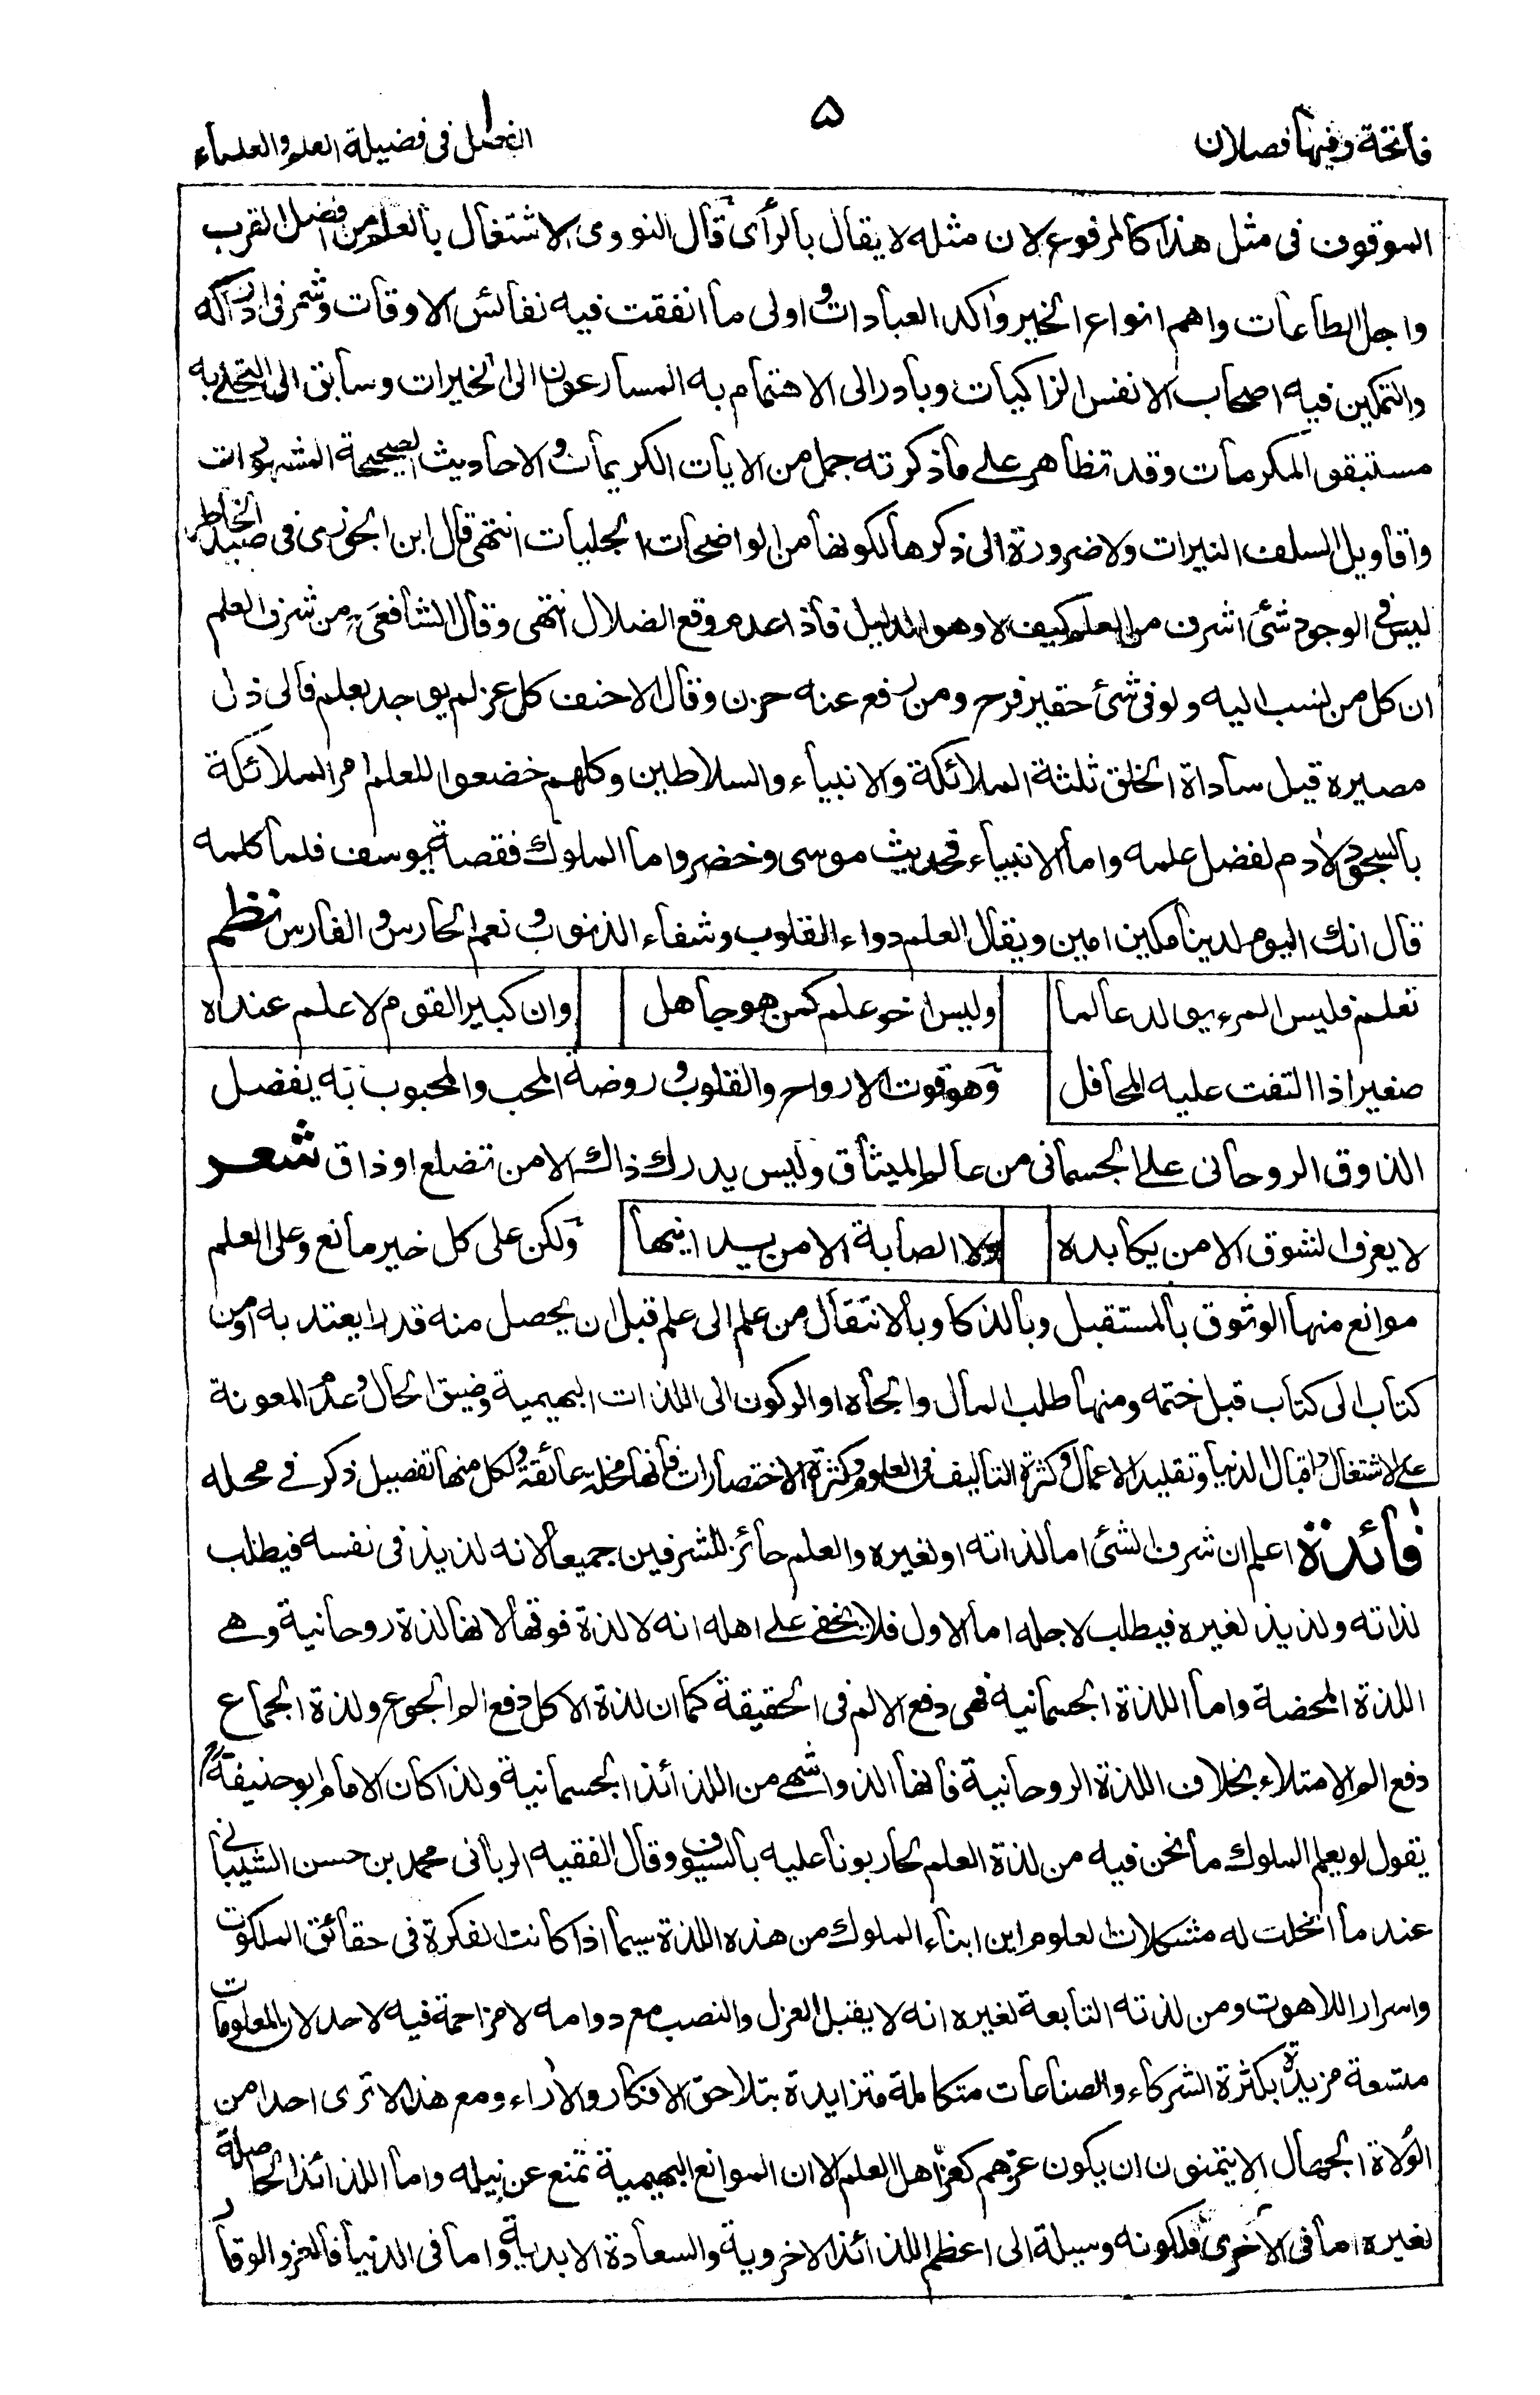 فاتحة وفيها فصلان
۵
الفصل ا في فضيلة العلم والعلماء
الموقوف فى مثل هذا كالمرفوع لان مثله لا يقال بالرأى قال النووى الاشتغال بالعلم من افضل القرب
واجل الطاعات واهم انواع الخير واكد العبادات واولى ما انفقت فيه نفائس الاوقات وشمر فى ادراكه
والتمكين فيه اصحاب الانفس الزاكيات وبادر الى الاهتمام به المسارعون الى الخيرات وسابق الى التحلى به
مستبقو المكرمات وقد تظاهر على ما ذكرته جمل من الايات الكريمات والاحاديث الصحيحة المشهورات
واقاويل السلف النيرات ولا ضرورة الى ذكرها لكونها من الواضحات الجليات انتهى قال ابن الجوزى فى صيد الخاطر
ليس فى الوجود شئ اشرف من العلم كيف لا وهو الدليل فاذا عدم وقع الضلال انتهى وقال الشافعى من شرف العلم
ان كل من نسب اليه ولو فى شئ حقير فرح ومن رفع عنه حزن وقال الاحنف كل عز لم يوجد بعلم فالى ذل
مصيره قيل ساداة الخلق ثلثة الملائكة والانبياء والسلاطين وكلهم خضعوا للعلم امر الملائكة
بالسجود لادم لفضل علمه واما الانبياء فحديث موسى وخضر واما الملوك فقصة يوسف فلما كلمه
قال انك اليوم لدينا مكين امين ويقال العلم دواء القلوب وشفاء الذنوب ونعم الحارس والفارس نظم
تعلم فليس المرء يولد عالما وليس اخو علم كمن هو جاهل وان كبير القوم لا علم عنده
صغير اذا التفت عليه المحافل وهو قوت الارواح والقلوب وروضة المحب والمحبوب به يفضل
الذوق الروحانى على الجسمانى من عالم الميثاق وليس يدرك ذاك الا من تضلع او ذاق شعر
لا يعرف الشوق الا من يكابده ولا الصبابة الا من يعانيها ولكن على كل خير مانع وعلى العلم
موانع منها الوثوق بالمستقبل وبالذكا وبالانتقال من علم الى علم قبل ان يحصل منه قدرا يعتد به او من
كتاب الى كتاب قبل ختمه ومنها طلب المال والجاه او الركون الى اللذات البهيمية وضيق الحال وعدم المعونة
على الاشتغال واقبال الدنيا وتقليد الاعمال وكثرة التاليف فى العلوم وكثرة الاختصارات فانها مخلة عائقة ولكل منها تفصيل ذكر فى محله
فائدة اعلم ان شرف الشئ اما لذاته او لغيره والعلم حائز للشرفين جميعا لانه لذيذ فى نفسه فيطلب
لذاته ولذيذ لغيره فيطلب لاجله اما الاول فلا يخفى على اهله انه لا لذة فوقها لانها لذة روحانية وهى
اللذة المحضة واما اللذة الجسمانية فهى دفع الالم فى الحقيقة كما ان لذة الاكل دفع الم الجوع ولذة الجماع
دفع الم الامتلاء بخلاف اللذة الروحانية فانها الذ واشهى من اللذائذ الجسمانية ولذا كان الامام ابو حنيفة
يقول لو يعلم الملوك ما نحن فيه من لذة العلم لحاربونا عليه بالسيوف وقال الفقيه الربانى محمد بن حسن الشيبانى
عند ما انحلت له مشكلات العلوم اين ابناء الملوك من هذه اللذة سيما اذا كانت الفكرة فى حقائق الملكوت
واسرار اللاهوت ومن لذته التابعة لغيره انه لا يقبل العزل والنصب مع دوامه لا مزاحمة فيه لاحد لان المعلومات
متسعة مزيدة بكثرة الشركاء والصناعات متكاملة متزايدة بتلاحق الافكار والاراء ومع هذا لا ترى احدا من
الولاة الجهال الا يتمنون ان يكون عزهم كعز اهل العلم الا ان الموانع البهيمية تمنع عن نيله واما اللذائذ الحاصلة
لغيره اما فى الاخرى فلكونه وسيلة الى اعظم اللذائذ الاخروية والسعادة الابدية واما فى الدنيا فالعز والوقار